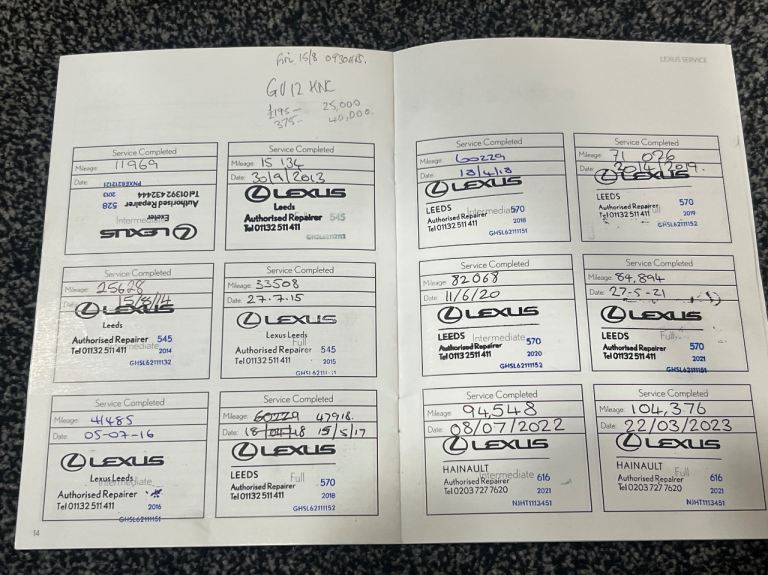 Fri 15/8 0930HRS.
GV12 KNC
£195- 25,000
375- 40,000.
Service Completed
Mileage: 11969
Date:
PNXE8212121
2013
Tel 01392 432444
Authorised Repairer 528
Intermediate
Exeter
LEXUS
Service Completed
Mileage: 15 134
Date: 30/9/2013
LEXUS
Leeds
Authorised Repairer 545
Tel 01132 511 411
Service Completed
Mileage: 25628
Date: 15/8/14
LEXUS
Leeds
Authorised Repairer 545
Intermediate
Tel 01132 511 411 2014
GHSL62111132
Service Completed
Mileage: 33508
Date: 27.7.15
LEXUS
Lexus Leeds
Full
Authorised Repairer 545
Tel 01132 511 411 2015
Service Completed
Mileage: 41485
Date: 05-07-16
LEXUS
Lexus Leeds
Intermediate
Authorised Repairer
Tel 01132 511 411 2016
GHSL62111151
Service Completed
Mileage: 60229 47918.
Date: 18/04/18 15/5/17
LEXUS
LEEDS
Full
Authorised Repairer 570
Tel 01132 511 411 2018
GHSL62111152
14
LEXUS SERVICE
Service Completed
Mileage: 60229
Date: 18/4/18
LEXUS
LEEDS
Intermediate
Authorised Repairer 570
Tel 01132 511 411 2018
GHSL62111151
Service Completed
Mileage: 71 076
Date: 20/4/2019.
LEXUS
LEEDS
Full
Authorised Repairer 570
Tel 01132 511 411 2019
GHSL62111152
Service Completed
Mileage: 82068
Date: 11/6/20
LEXUS
LEEDS
Intermediate
Authorised Repairer 570
Tel 01132 511 411 2020
GHSL62111152
Service Completed
Mileage: 89,894
Date: 27-5-21
LEXUS
LEEDS
Full
Authorised Repairer 570
Tel 01132 511 411 2021
GHSL62111151
Service Completed
Mileage: 94,548
Date: 08/07/2022
LEXUS
HAINAULT
Intermediate
Authorised Repairer 616
Tel 0203 727 7620 2021
NJHT1113451
Service Completed
Mileage: 104,376
Date: 22/03/2023
LEXUS
HAINAULT
Full
Authorised Repairer 616
Tel 0203 727 7620 2021
NJHT1113451